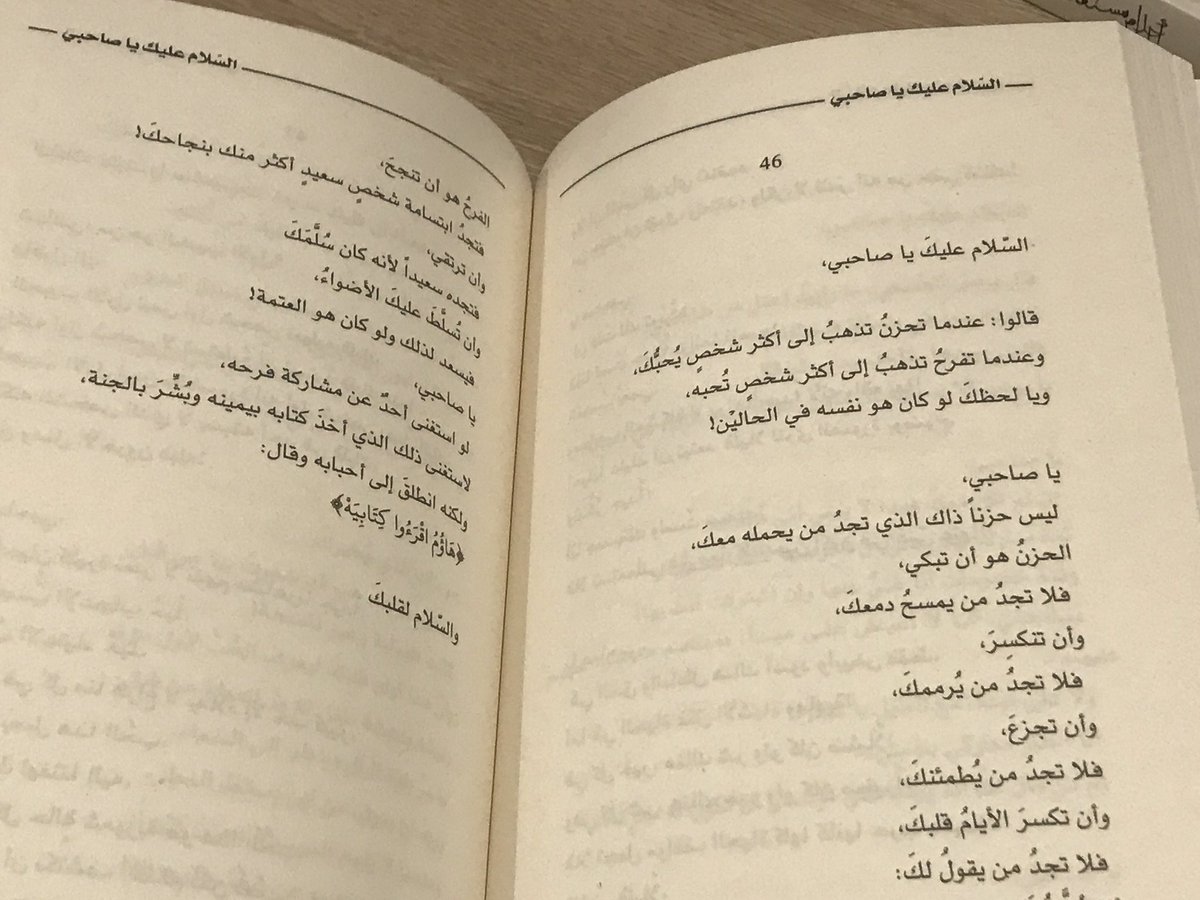 السّلام عليك يا صاحبي
46
السّلام عليكَ يا صاحبي،
قالوا: عندما تحزنُ تذهبُ إلى أكثر شخصٍ يُحبُّكَ،
وعندما تفرحُ تذهبُ إلى أكثر شخصٍ تُحبه،
ويا لحظكَ لو كان هو نفسه في الحاليْن!
يا صاحبي،
ليس حزناً ذاك الذي تجدُ من يحمله معكَ،
الحزنُ هو أن تبكي،
فلا تجدُ من يمسحُ دمعكَ،
وأن تنكسِرَ،
فلا تجدُ من يُرممكَ،
وأن تجزعَ،
فلا تجدُ من يُطمئنكَ،
وأن تكسرَ الأيامُ قلبكَ،
فلا تجدُ من يقولُ لكَ:
السّلام عليك يا صاحبي
الفرحُ هو أن تنجحَ،
فتجدُ ابتسامة شخصٍ سعيدٍ أكثر منك بنجاحكَ!
وأن ترتقي،
فتجده سعيداً لأنه كان سُلَّمَكَ
وأن تُسلَّطَ عليكَ الأضواءُ،
فيسعد لذلك ولو كان هو العتمة!
يا صاحبي،
لو استغنى أحدٌ عن مشاركة فرحه،
لاستغنى ذلك الذي أخذَ كتابه بيمينه وبُشِّرَ بالجنة،
ولكنه انطلقَ إلى أحبابه وقال:
﴿هَاؤُمُ اقْرَءُوا كِتَابِيَهْ﴾
والسّلام لقلبكَ